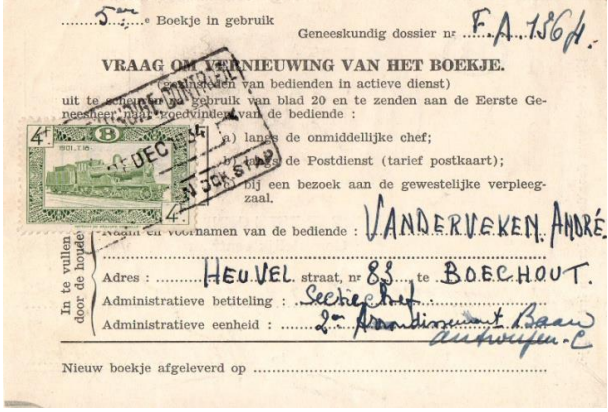 5en e Boekje in gebruik
Geneeskundig dossier nr F.A.1364.
VRAAG OM VERNIEUWING VAN HET BOEKJE.
van bedienden in actieve dienst)
uit te gebruik van blad 20 en te zenden aan de Eerste Ge-
neesheer van de bediende :
4F B
1901. T.18.
4F
DEC 1954
a) langs de onmiddellijke chef;
b) langs de Postdienst (tarief postkaart);
bij een bezoek aan de gewestelijke verpleeg-
zaal.
In te vullen
door de houder
Naam en voornamen van de bediende : VANDERVEKEN. ANDRÉ.
Adres : HEUVEL straat, nr 83 te BOECHOUT.
Administratieve betiteling : Sectiechef.
Administratieve eenheid : 2e Arrondissement Baan
Antwerpen-C
Nieuw boekje afgeleverd op